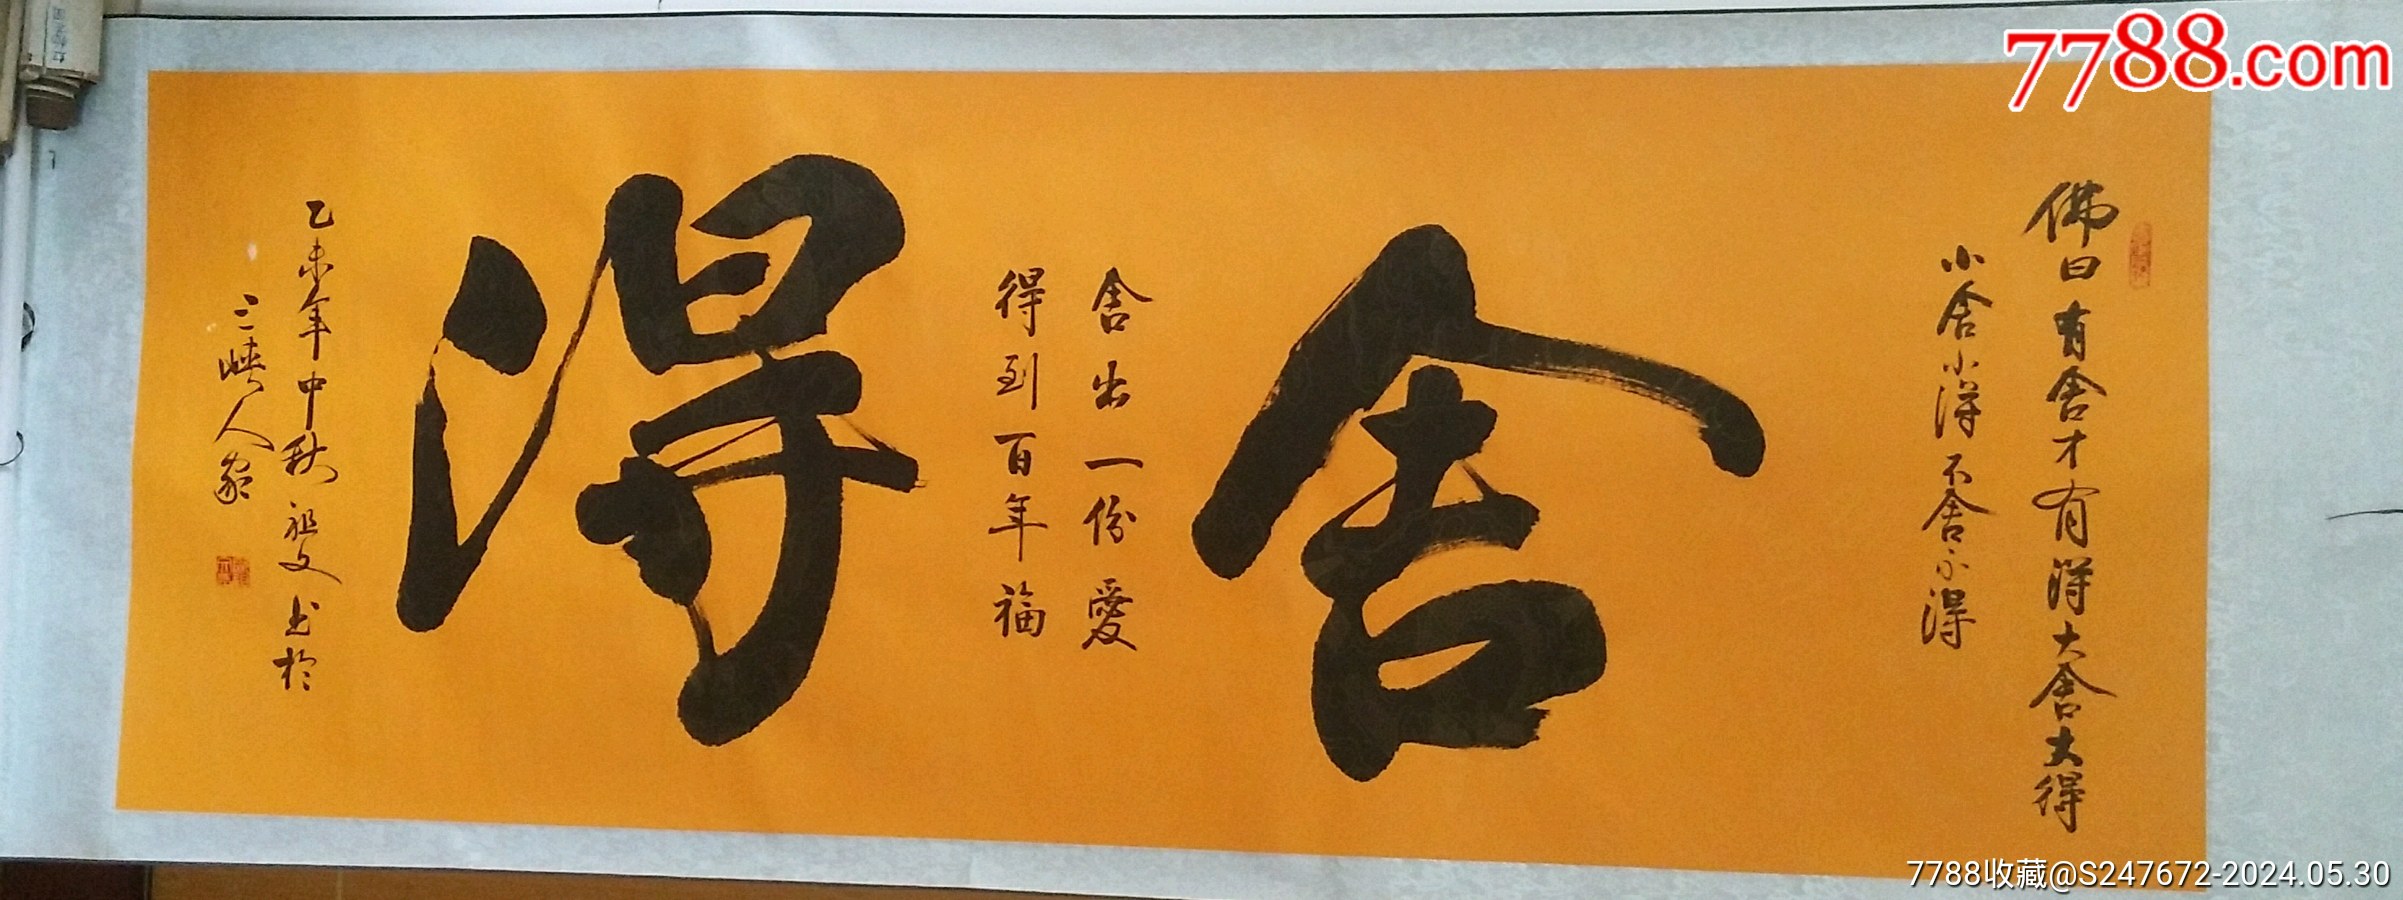 7788.com
佛曰有舍才有得大舍大得
小舍小得不舍不得
舍
舍出一份愛
得到百年福
得
乙未年中秋祖文书於
三峡人家
7788收藏@S247672-2024.05.30